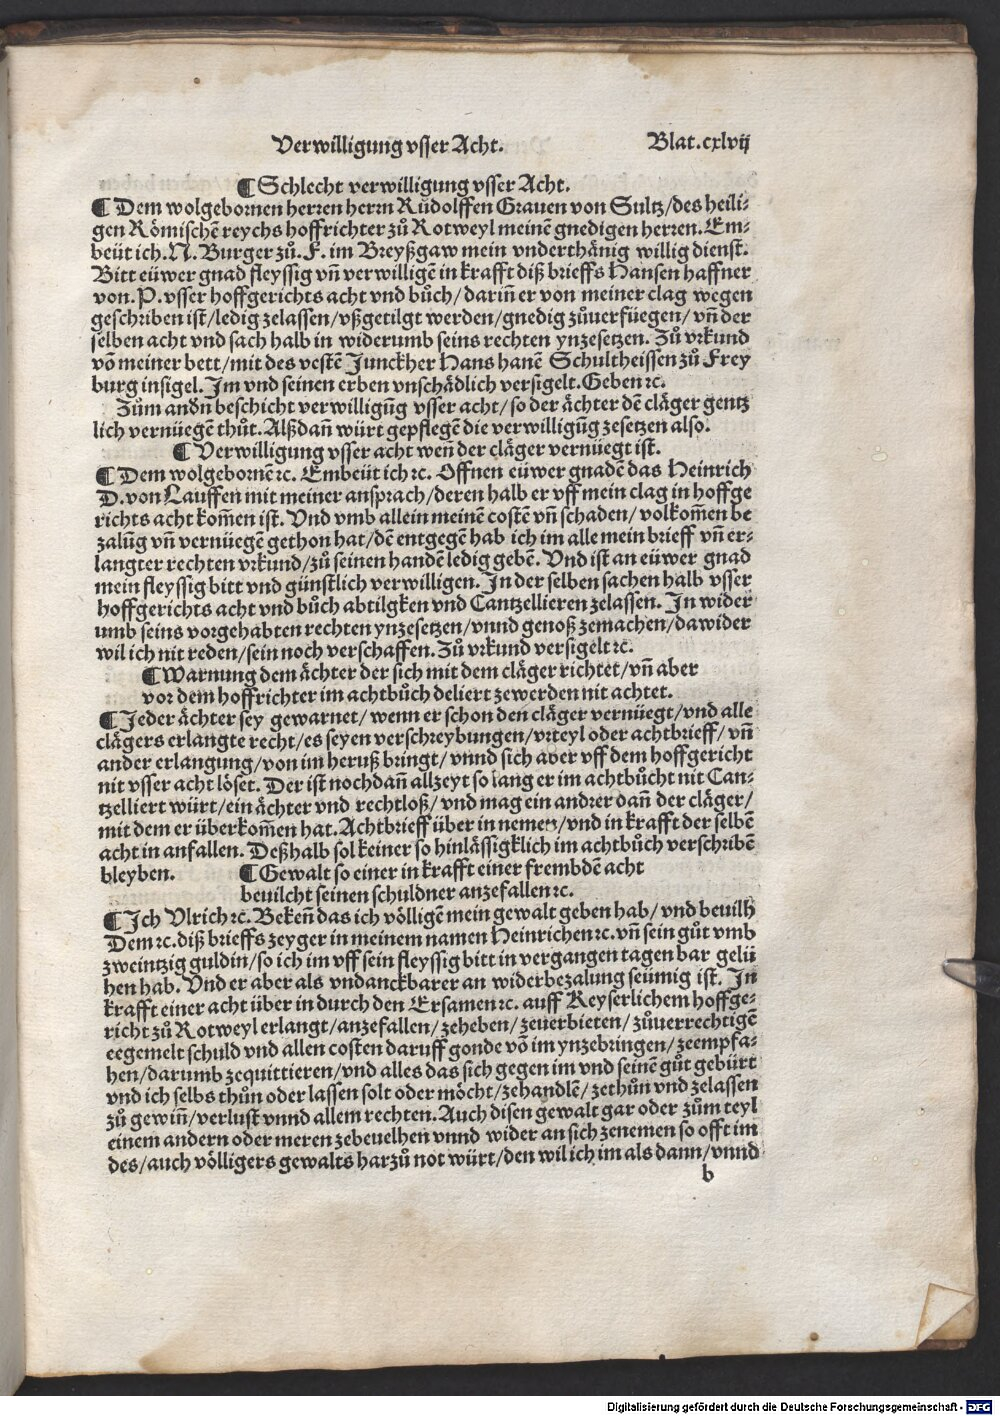 Verwilligung vsser Acht. Blat.cxlvij
¶ Schlecht verwilligung vsser Acht.
¶ Dem wolgebornen herren herrn Růdolffen Grauen von Sultz/des heili⸗
gen Römischē reychs hoffrichter zů Rotweyl meinē gnedigen herren. Em⸗
beüt ich. N. Burger zů. F. im Breyßgaw mein vnderthänig willig dienst.
Bitt eüwer gnad fleyssig vn̄ verwilligē in krafft diß brieffs Hansen haffner
von. P. vsser hoffgerichts acht vnd bůch/darin̄ er von meiner clag wegen
geschriben ist/ledig zelassen/vßgetilgt werden/gnedig zůuerfüegen/vn̄ der
selben acht vnd sach halb in widerumb seins rechten ynzesetzen. Zů vrkund
vō meiner bett/mit des vestē Junckher Hans hanē Schultheissen zů Frey
burg insigel. Im vnd seinen erben vnschädlich versigelt. Geben ꝛc.
Zům andn̄ beschicht verwilligūg vsser acht/so der ächter dē cläger gentz
lich vernüegē thůt. Alßdan̄ würt gepflegē die verwilligūg zesetzen also.
¶ Verwilligung vsser acht wen̄ der cläger vernüegt ist.
¶ Dem wolgebornē ꝛc. Embeüt ich ꝛc. Offnen eüwer gnadē das Heinrich
D. von Lauffen mit meiner ansprach/deren halb er vff mein clag in hoffge
richts acht kom̄en ist. Vnd vmb allein meinē costē vn̄ schaden/volkom̄en be
zalūg vn̄ vernüegē gethon hat/dē entgegē hab ich im alle mein brieff vn̄ er⸗
langter rechten vrkund/zů seinen handē ledig gebē. Vnd ist an eüwer gnad
mein fleyssig bitt vnd günstlich verwilligen. In der selben sachen halb vsser
hoffgerichts acht vnd bůch abtilgken vnd Cantzellieren zelassen. In wider
umb seins vorgehabten rechten ynzesetzen/vnnd genoß zemachen/dawider
wil ich nit reden/sein noch verschaffen. Zů vrkund versigelt ꝛc.
¶ Warnung dem ächter der sich mit dem cläger richtet/vn̄ aber
vor dem hoffrichter im achtbůch deliert zewerden nit achtet.
¶ Jeder ächter sey gewarnet/wenn er schon den cläger vernüegt/vnd alle
clägers erlangte recht/es seyen verschreybungen/vrteyl oder achtbrieff/vn̄
ander erlangung/von im heruß bringt/vnnd sich aber vff dem hoffgericht
nit vsser acht löset. Der ist nochdan̄ allzeyt so lang er im achtbůcht nit Can⸗
tzelliert würt/ein ächter vnd rechtloß/vnd mag ein andrer dan̄ der cläger/
mit dem er überkom̄en hat. Achtbrieff über in nemen/vnd in krafft der selbē
acht in anfallen. Deßhalb sol keiner so hinlässigklich im achtbůch verschribē
bleyben. ¶ Gewalt so einer in krafft einer frembdē acht
beuilcht seinen schuldner anzefallen ꝛc.
¶ Ich Vlrich ꝛc. Beken̄ das ich völligē mein gewalt geben hab/vnd beuilh
Dem ꝛc. diß brieffs zeyger in meinem namen Heinrichen ꝛc. vn̄ sein gůt vmb
zweintzig guldin/so ich im vff sein fleyssig bitt in vergangen tagen bar gelü
hen hab. Vnd er aber als vndanckbarer an widerbezalung seümig ist. In
krafft einer acht über in durch den Ersamen ꝛc. auff Keyserlichem hoffge⸗
richt zů Rotweyl erlangt/anzefallen/zeheben/zeuerbieten/zůuerrechtigē
eegemelt schuld vnd allen costen daruff gonde vō im ynzebringen/zeempfa⸗
hen/darumb zequittieren/vnd alles das sich gegen im vnd seinē gůt gebürt
vnd ich selbs thůn oder lassen solt oder möcht/zehandlē/zethůn vnd zelassen
zů gewin̄/verlust vnnd allem rechten. Auch disen gewalt gar oder zům teyl
einem andern oder meren zebeuelhen vnnd wider an sich zenemen so offt im
des/auch völligers gewalts harzů not würt/den wil ich im als dann/vnnd
b
Digitalisierung gefördert durch die Deutsche Forschungsgemeinschaft - DFG